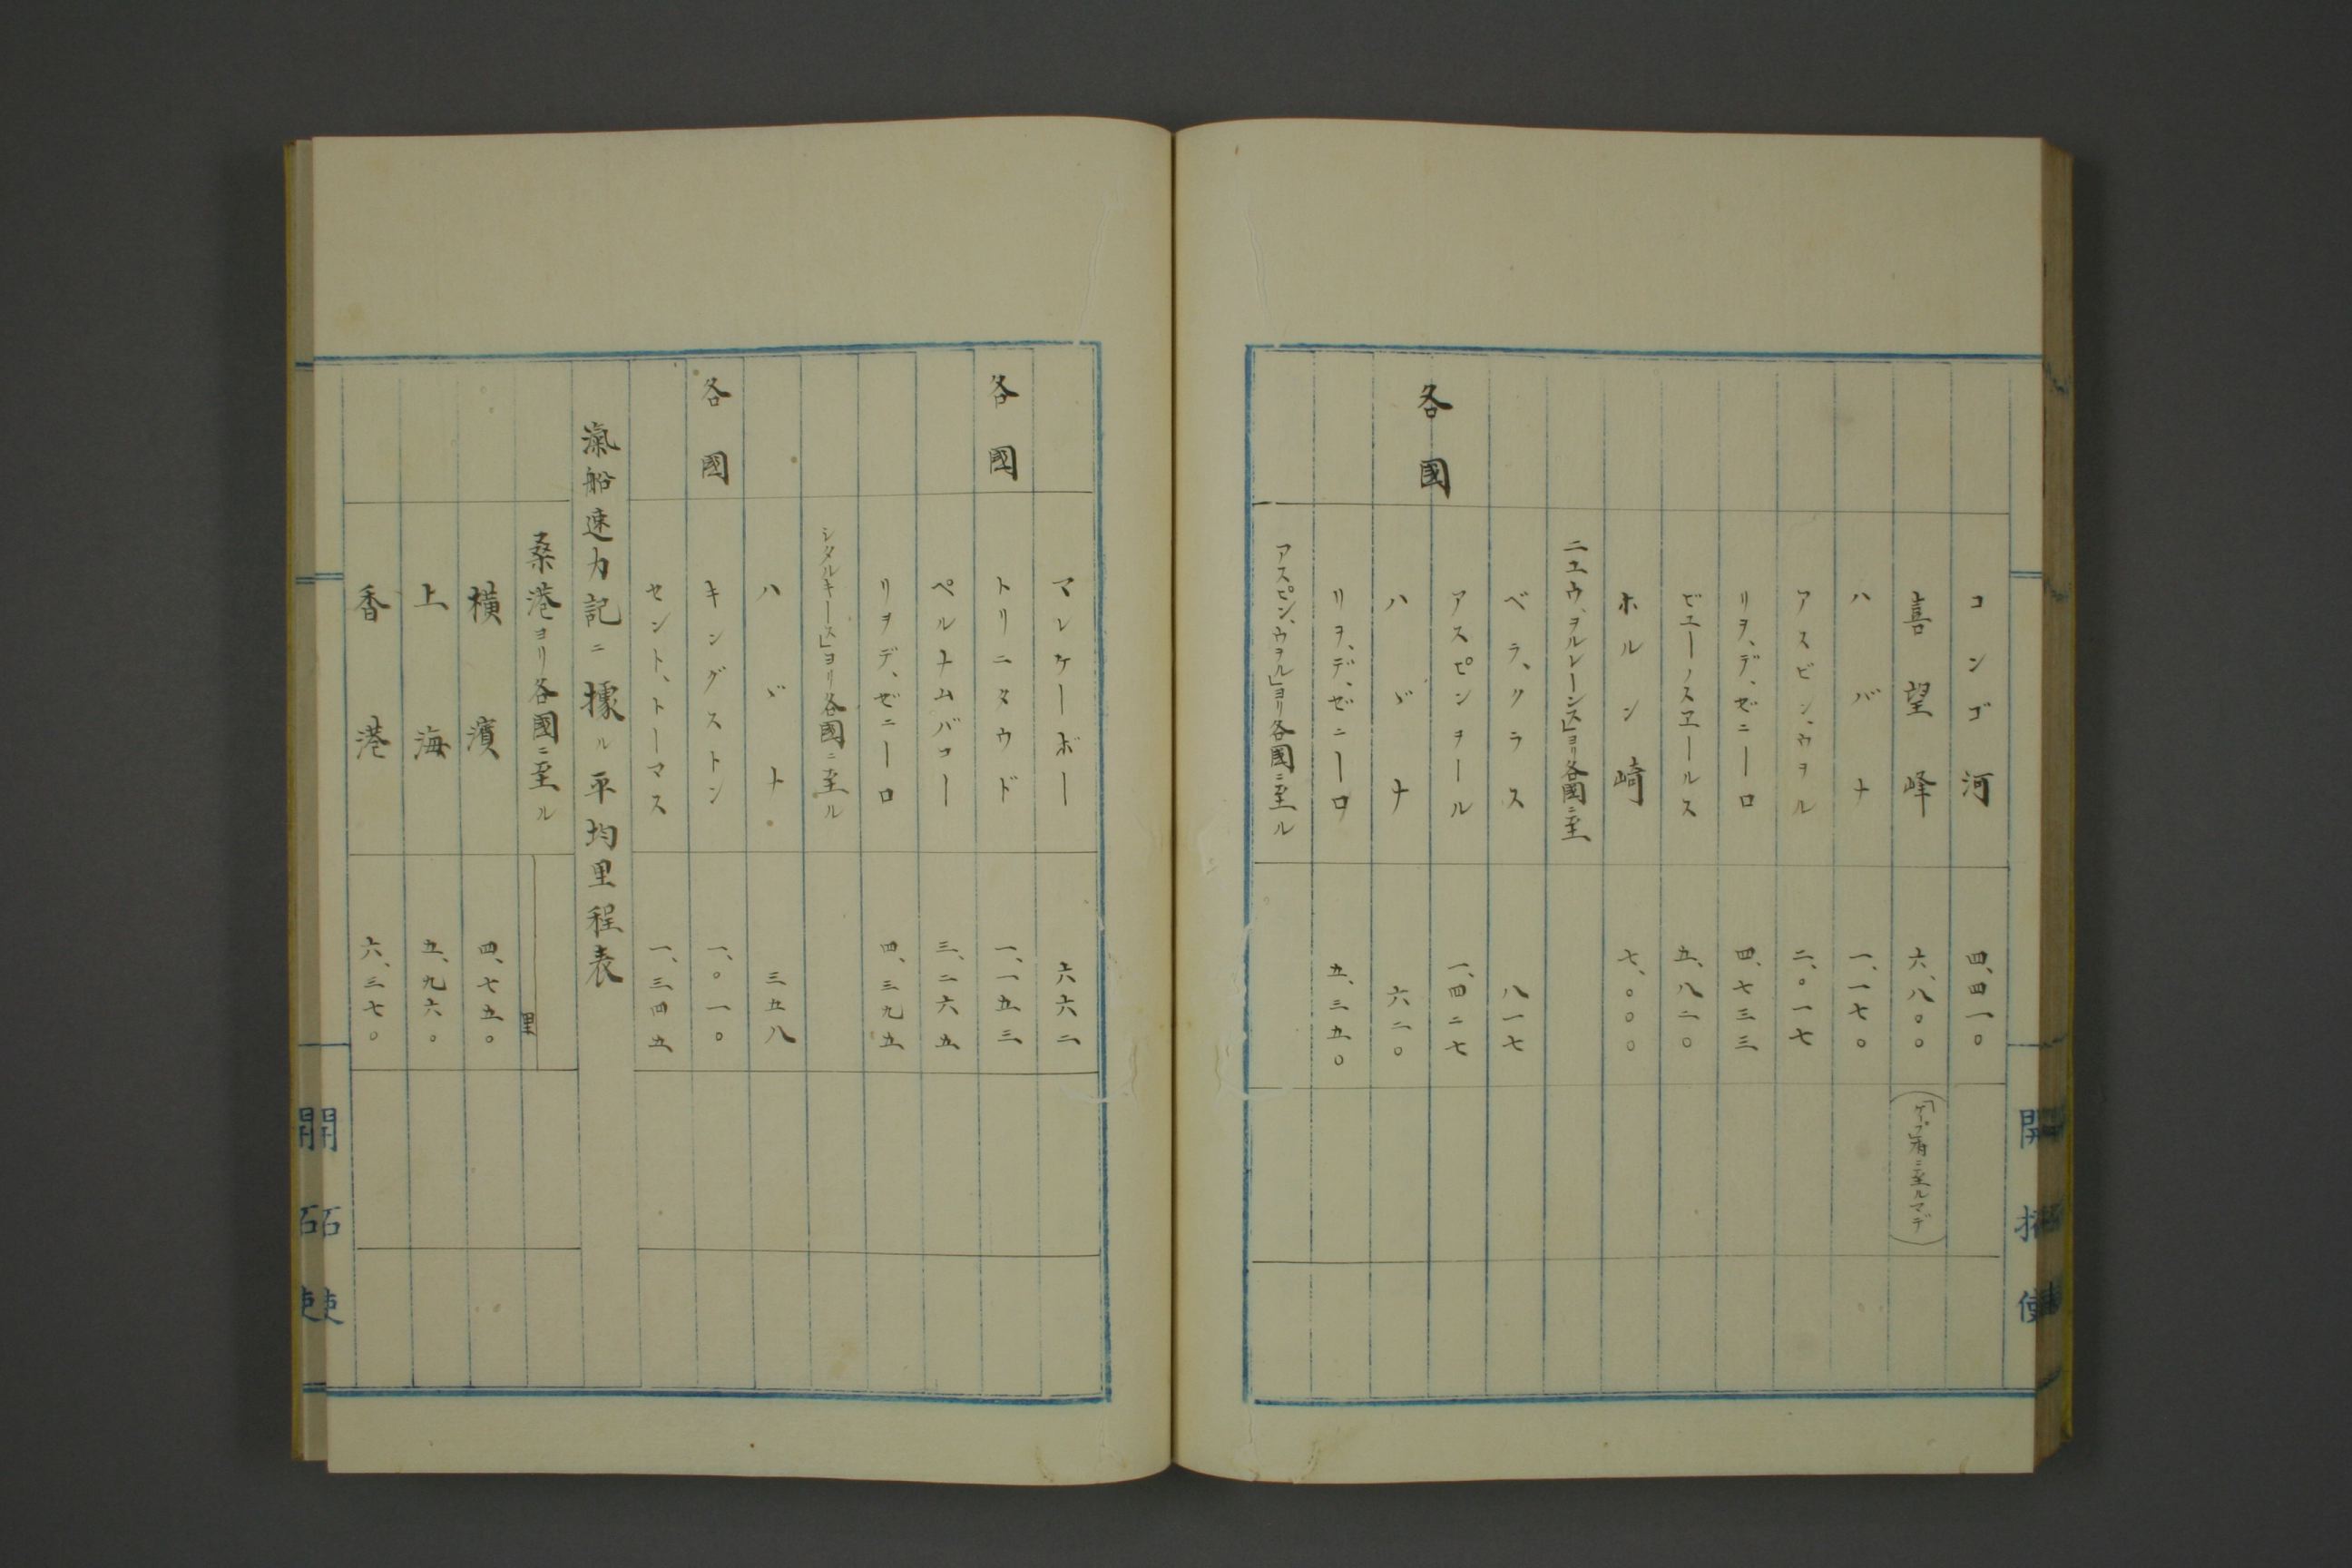 コンゴ河 四、四一〇
喜望峰 六、八〇〇 (「ケープ」府ニ至ルマデ)
ハバナ 一、一七〇
アスビン、ウヲル 二、〇一七
リヲ、デ、ゼニーロ 四、七三三
ビユーノスヱールス 五、八二〇
ホルン崎 七、〇〇〇
ニユウ、ヲルレーンス」ヨリ各國ニ至
ベラ、クラス 八一七
各國 アスピンヲール 一、四二七
ハヾナ 六二〇
リヲ、デ、ゼニーロ 五、三五〇
アスピン、ウヲル」ヨリ各國ニ至ル
開拓使
マレケーボー 六六二
各國 トリニタウド 一、一五三
ペルナムバコー 三、二六五
リヲデ、ゼニーロ 四、三九五
シタルキース」ヨリ各國ニ至ル
ハヾナ 三五八
各國 キングストン 一、〇一〇
セント、トーマス 一、三四五
滊船速力記ニ據ル平均里程表
桑港ヨリ各國ニ至ル 里
橫濱 四、七五〇
上海 五、九六〇
香港 六、三七〇